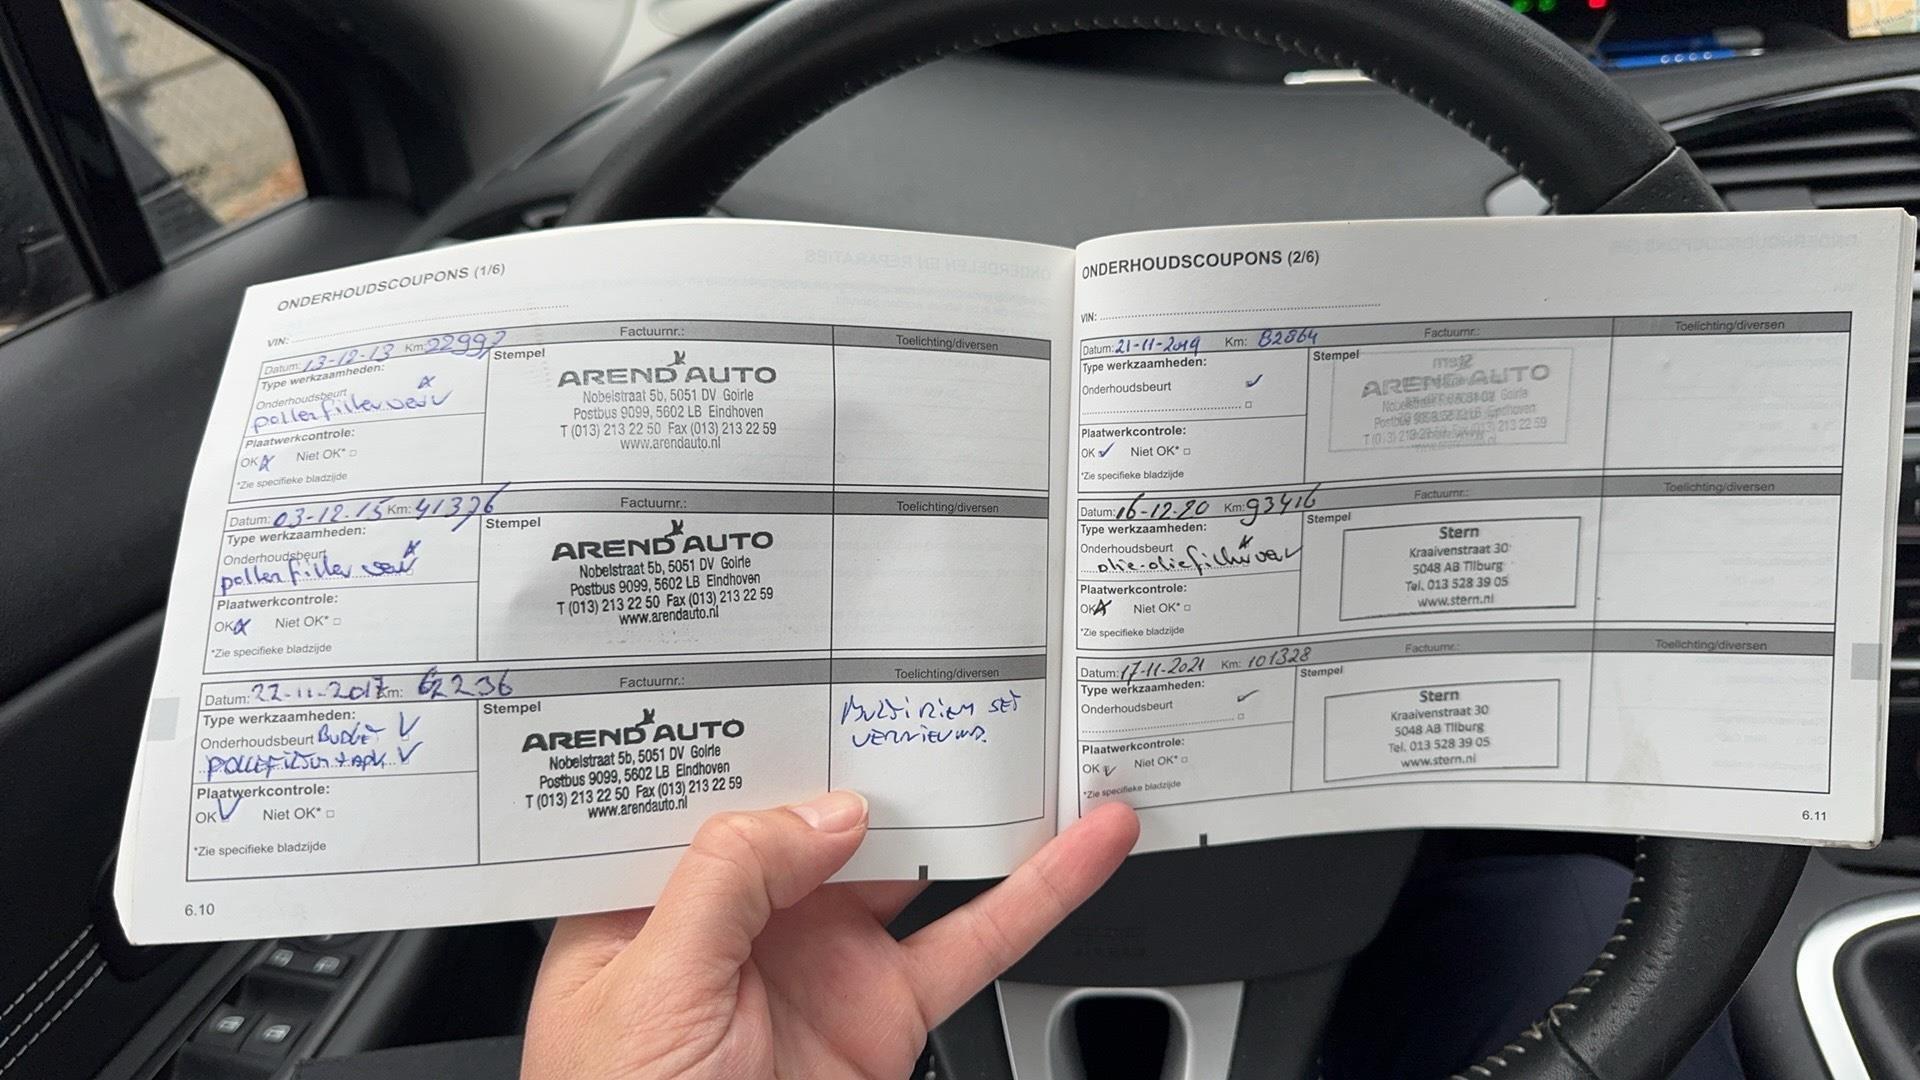 ONDERHOUDSCOUPONS (1/6)
VIN:
Datum: 13-12-13 Km: 22997
Factuurnr.:
Toelichting/diversen
Type werkzaamheden:
Onderhoudsbeurt
pollenfilter verv
Plaatwerkcontrole:
OK Niet OK*
*Zie specifieke bladzijde
Stempel
AREND AUTO
Nobelstraat 5b, 5051 DV Goirle
Postbus 9099, 5602 LB Eindhoven
T (013) 213 22 50 Fax (013) 213 22 59
www.arendauto.nl
Datum: 03-12-15 Km: 41376
Factuurnr.:
Toelichting/diversen
Type werkzaamheden:
Onderhoudsbeurt
pollenfilter verv
Plaatwerkcontrole:
OK Niet OK*
*Zie specifieke bladzijde
Stempel
AREND AUTO
Nobelstraat 5b, 5051 DV Goirle
Postbus 9099, 5602 LB Eindhoven
T (013) 213 22 50 Fax (013) 213 22 59
www.arendauto.nl
Datum: 22-11-2017 Km: 62236
Factuurnr.:
Toelichting/diversen
Type werkzaamheden:
Onderhoudsbeurt BUDGET
Plaatwerkcontrole:
OK Niet OK*
*Zie specifieke bladzijde
Stempel
AREND AUTO
Nobelstraat 5b, 5051 DV Goirle
Postbus 9099, 5602 LB Eindhoven
T (013) 213 22 50 Fax (013) 213 22 59
www.arendauto.nl
MULTIRIEM SET
VERNIEUWD.
6.10
ONDERHOUDSCOUPONS (2/6)
VIN:
Datum: 21-11-2019 Km: 82864
Factuurnr.:
Toelichting/diversen
Type werkzaamheden:
Onderhoudsbeurt
Plaatwerkcontrole:
OK Niet OK*
*Zie specifieke bladzijde
Stempel
AREND AUTO
Datum: 16-12-20 Km: 93416
Factuurnr.:
Toelichting/diversen
Type werkzaamheden:
Onderhoudsbeurt
olie-oliefilter verv
Plaatwerkcontrole:
OK Niet OK*
*Zie specifieke bladzijde
Stempel
Stern
Kraaivenstraat 30
5048 AB Tilburg
Tel. 013 528 39 05
www.stern.nl
Datum: 17-11-2021 Km: 101328
Factuurnr.:
Toelichting/diversen
Type werkzaamheden:
Onderhoudsbeurt
Plaatwerkcontrole:
OK Niet OK*
*Zie specifieke bladzijde
Stempel
Stern
Kraaivenstraat 30
5048 AB Tilburg
Tel. 013 528 39 05
www.stern.nl
6.11